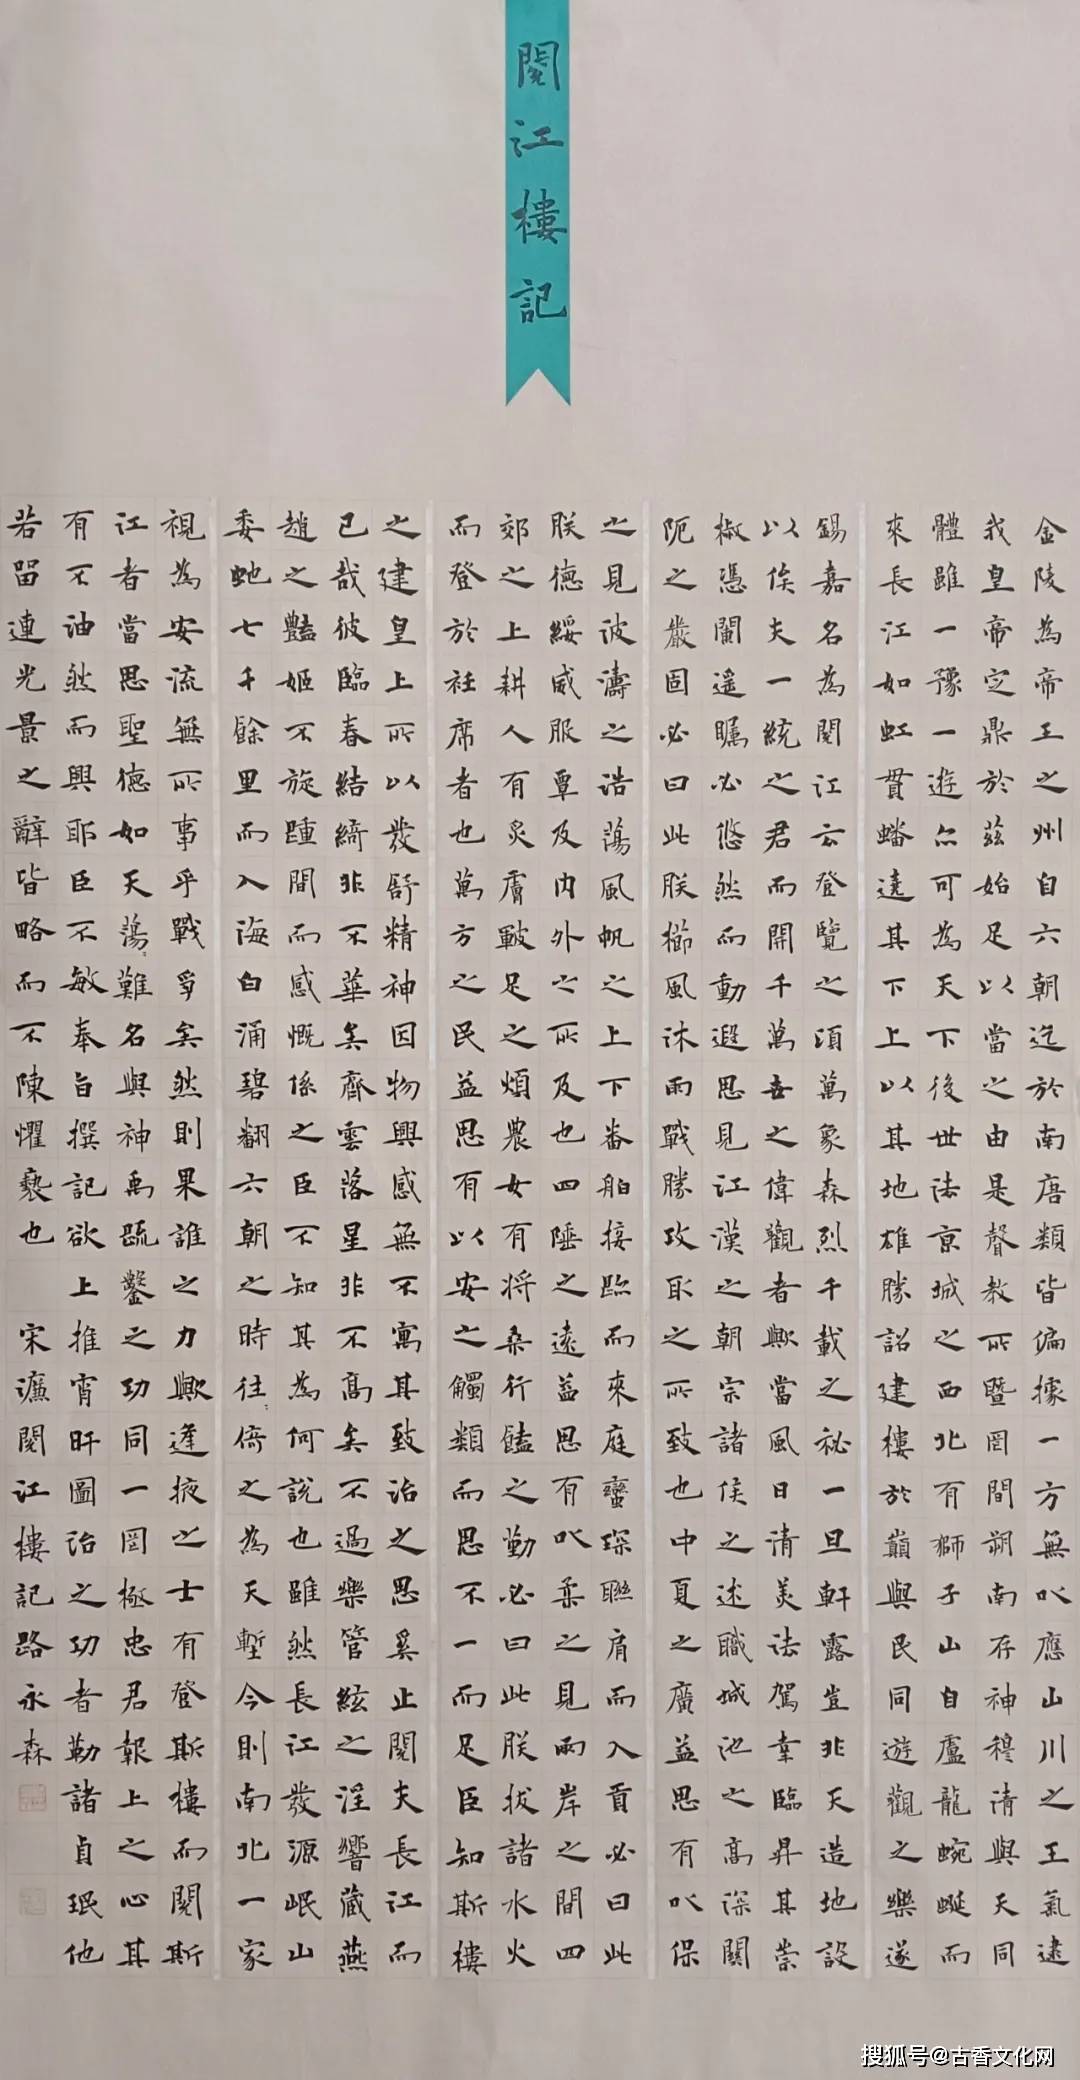 閱江樓記
金陵為帝王之州自六朝迄於南唐類皆偏據一方無以應山川之王氣逮
我皇帝定鼎於茲始足以當之由是聲教所暨罔間朔南存神穆清與天同
體雖一豫一遊亦可為天下後世法京城之西北有獅子山自盧龍蜿蜒而
來長江如虹貫蟠遶其下上以其地雄勝詔建樓於巔與民同遊觀之樂遂
錫嘉名為閱江云登覽之頃萬象森烈千載之祕一旦軒露豈非天造地設
以俟夫一統之君而開千萬世之偉觀者歟當風日清美法駕幸臨昇其崇
椒憑闌遙矚必悠然而動遐思見江漢之朝宗諸侯之述職城池之高深關
阨之嚴固必曰此朕櫛風沐雨戰勝攻取之所致也中夏之廣益思有以保
之見波濤之浩蕩風帆之上下番舶接跡而來庭蠻琛聯肩而入貢必曰此
朕德綏威服覃及內外之所及也四陲之遠益思有以柔之見兩岸之間四
郊之上耕人有炙膚皸足之煩農女有将桑行饁之勤必曰此朕拔諸水火
而登於衽席者也萬方之民益思有以安之觸類而思不一而足臣知斯樓
之建皇上所以發舒精神因物興感無不寓其致治之思奚止閱夫長江而
已哉彼臨春結綺非不華矣齊雲落星非不高矣不過樂管絃之淫響藏燕
趙之豔姬不旋踵間而感慨係之臣不知其為何說也雖然長江發源岷山
委虵七千餘里而入海白涌碧翻六朝之時往〻倚之為天塹今則南北一家
視為安流無所事乎戰爭矣然則果誰之力歟逢掖之士有登斯樓而閱斯
江者當思聖德如天蕩〻難名與神禹疏鑿之功同一罔極忠君報上之心其
有不油然而興耶臣不敏奉旨撰記欲上推宵旰圖治之功者勒諸貞珉他
若留連光景之辭皆略而不陳懼褻也 宋濂閱江樓記路永森
搜狐号@古香文化网